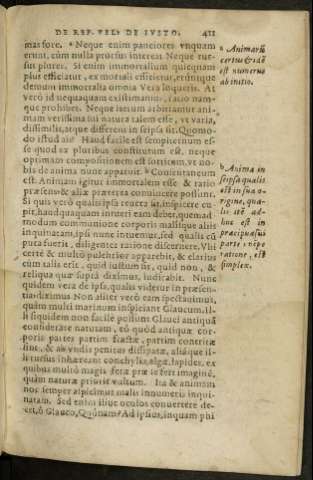 DE REP. VEL, DE IVSTO. 411
mas fore. ᵃ Neque enim pauciores vnquam
erunt, cùm nulla prorsus intereat. Neque rur-
sus plures. Si enim immortalium quicquam
plus efficiatur, ex mortali efficietur, erúntque
demum immortalia omnia. Vera loqueris. At
verò id nequaquam existimamus, ratio nam-
que prohibet. Neque iterum arbitramur ani-
mam verissima sui natura talem esse, vt varia,
dissimilis, atque differens in seipsa sit. Quomo-
do istud ais? Haud facile est sempiternum es-
se quod ex pluribus constitutum est, neque
optimam compositionem est sortitum, vt no-
bis de anima nunc apparuit. ᵇ Consentaneum
est. Animam igitur immortalem esse & ratio
præsens & aliæ præterea conuincere possunt.
Si quis verò qualis ipsa reuera sit, inspicere cu-
pit, haud quaquam intueri eam debet, quemad
modum communione corporis malisque aliis
inquinatam, ipsi nunc intuemur, sed qualis cùm
pura fuerit, diligenter ratione discernere. Vbi
certè & multò pulchrior apparebit, & clarius
cùm talis erit, quid iustum sit, quid non, &
reliqua quæ suprà diximus, iudicabit. Nunc
quidem vera de ipsa, qualis videtur in præsen-
tia, diximus. Non aliter verò eam spectauimus,
quàm multi marinum inspiciant Glaucum. Il-
li siquidem non facile possunt Glauci antiquã
considerare naturam, eò quòd antiquæ cor-
poris partes partim fractæ, partim contritæ
sint, & ab vndis penitus dissipatæ, aliáque il-
li rursus inhæreant: conchylia, algæ, lapides, ex
quibus multò magis feræ præ se fert imaginé,
quàm naturæ prioris vultum. Ita & animam
nos semper aspicimus malis innumeris inqui-
natam. Sed enim illuc oculos conuertere de-
cet, ô Glauco, Quónam? Ad ipsius, inquam phi
a Animarũ
certus & idẽ
est numerus
ab initio.
b Anima in
seipsa qualis
est in sua o-
rigine, qua-
lis itẽ ad-
huc est in
præcipua sui
parte, nẽpe
ratione, est
simplex.